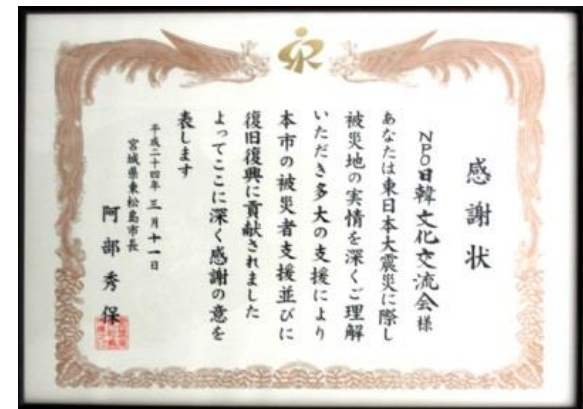 感謝状
NPO日韓文化交流会様
あなたは東日本大震災に際し
被災地の実情を深くご理解
いただき多大の支援により
本市の被災者支援並びに
復旧復興に貢献されました
よってここに深く感謝の意を
表します
平成二十四年三月十一日
宮城県東松島市長
阿部秀保